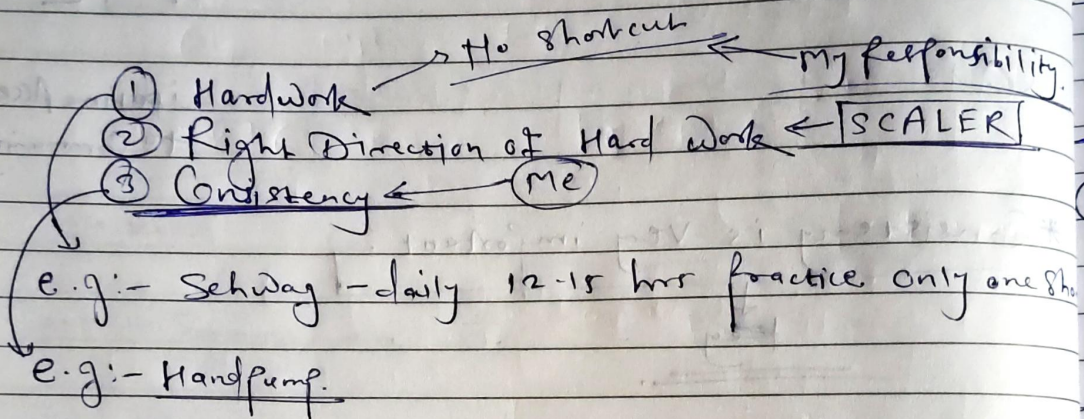 → No shortcut ← My Responsibility.
① Hardwork
② Right Direction of Hard Work ← SCALER
③ Consistency ← Me
e.g:- Sehwag - daily 12-15 hrs practice only one
e.g:- Handpump.